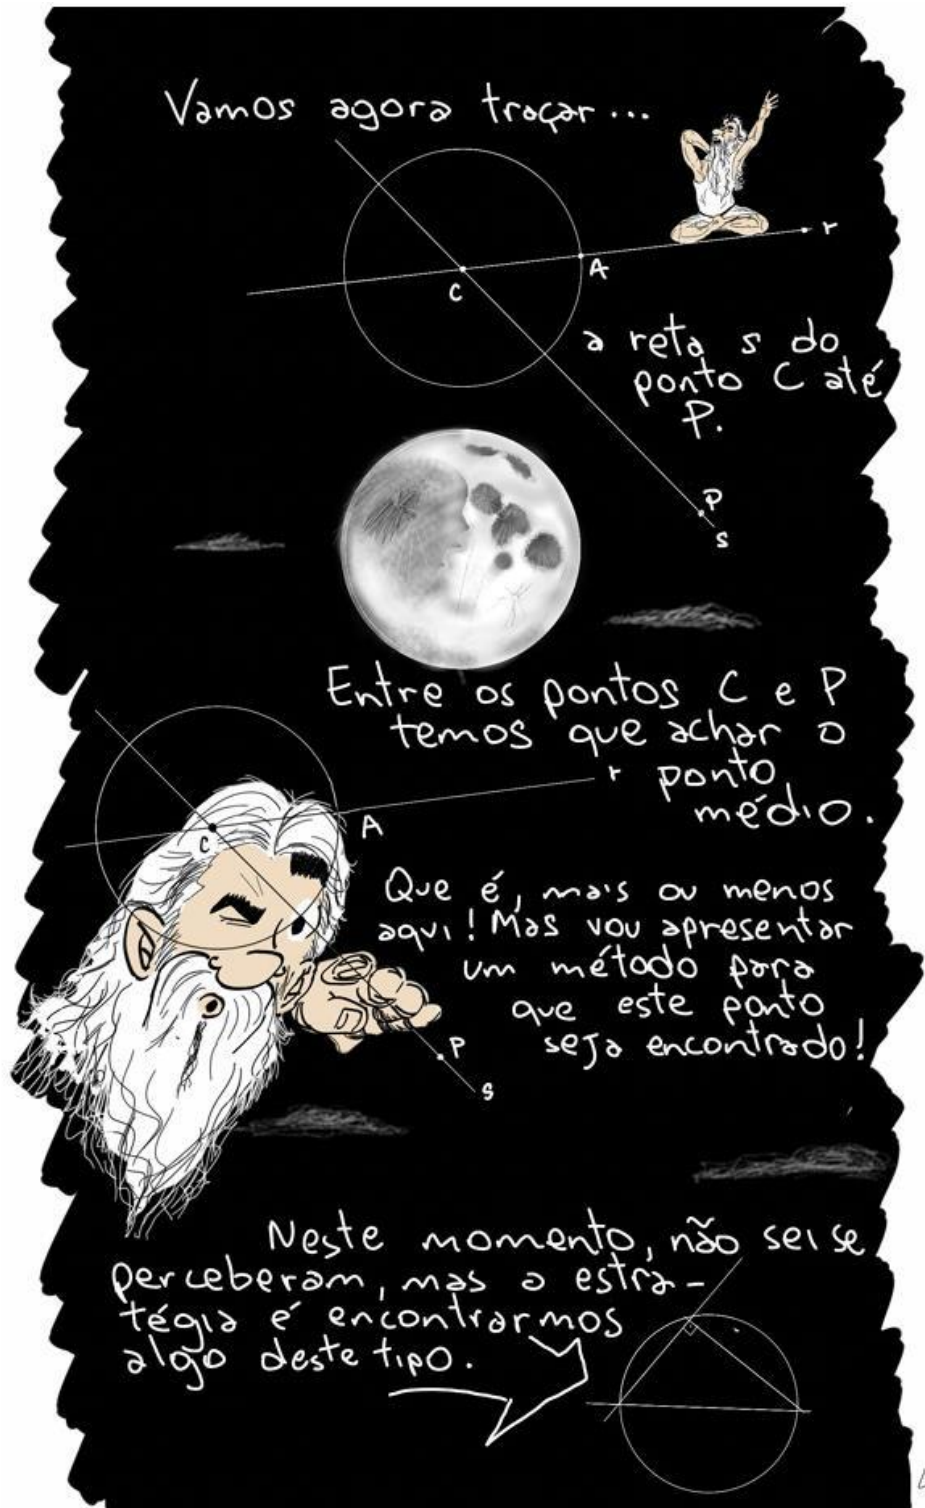 Vamos agora traçar...
r
A
C
a reta s do
ponto C até
P.
P
s
Entre os pontos C e P
temos que achar o
r ponto
médio.
A
C
Que é, mais ou menos
aqui! Mas vou apresentar
um método para
que este ponto
seja encontrado!
P
s
Neste momento, não sei se
perceberam, mas a estra-
tégia é encontrarmos
algo deste tipo.